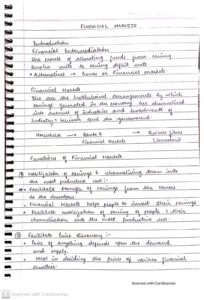 FINANCIAL MARKETS
Introduction
Financial Intermediation
The process of allocating funds from saving
surplus units to saving deficit units
• Alternatives → Banks or Financial markets
Financial Markets
They are the institutional arrangements by which
savings generated in the economy are channelised
into avenues of industries and investments of
Industry, business and the government
Household → Banks & → Business firms
Financial Markets (Investors)
Functions of Financial Markets
① Mobilization of savings & channelising them into
the most productive use :-
• Facilitate transfer of savings from the savers
to the investors.
• Financial markets helps people to invest their savings
• Facilitate mobilization of saving of people & their
channelisation into the most productive use.
② Facilitate Price discovery :-
• Price of anything depends upon the demand
and supply.
• Helps in deciding the price of various financial
securities.
Scanned with CamScanner
Scanned with CamScanner